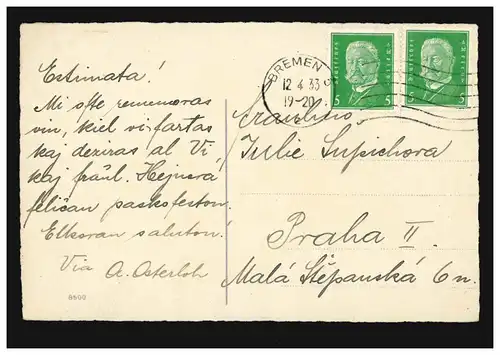 Estimata!
Mi ofte rememoras
vin, kiel vi fartas
kaj deziras al Vi
kaj fraŭl. Hejnová
feliĉan paskofeston.
Elkoran saluton!
Via A. Osterloh
8600
BREMEN
12 4 33
19-20
5 5
5 5
Fraŭlino
Julie Šupichova
Praha II
Malá Štěpanská 6 n.